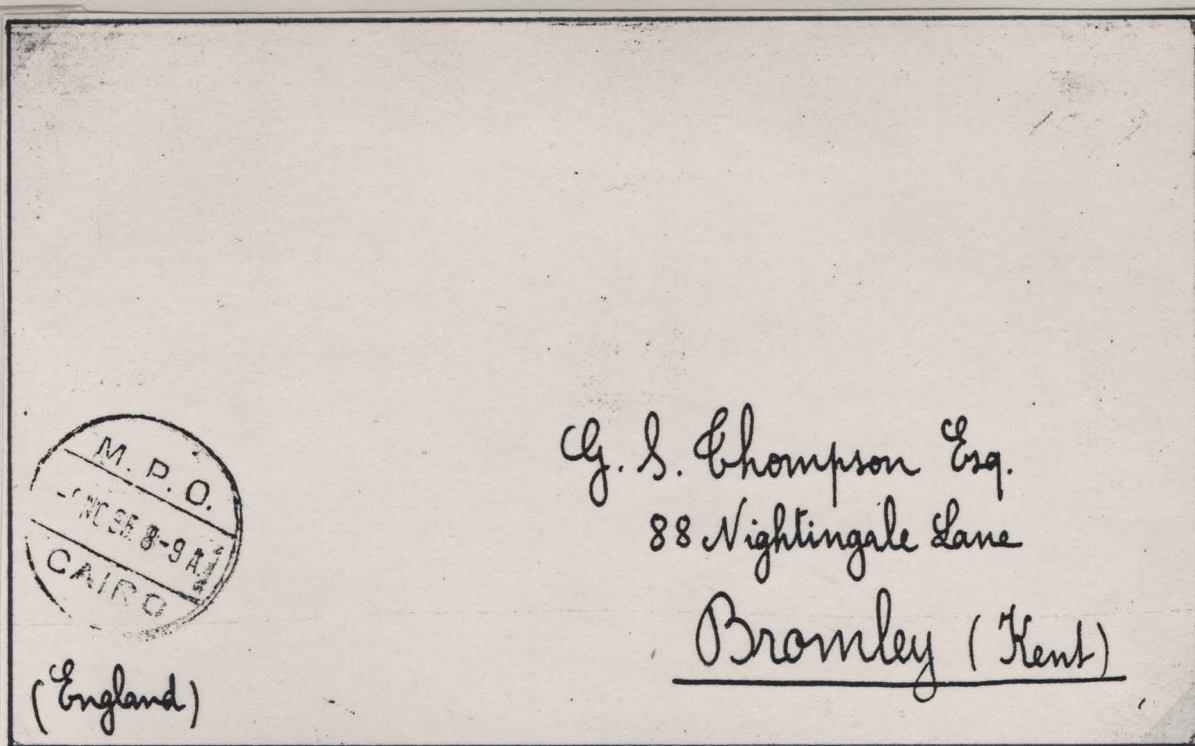 M. P. O.
36 8-9 A.
CAIRO
G. S. Thompson Esq.
88 Nightingale Lane
Bromley (Kent)
(England)